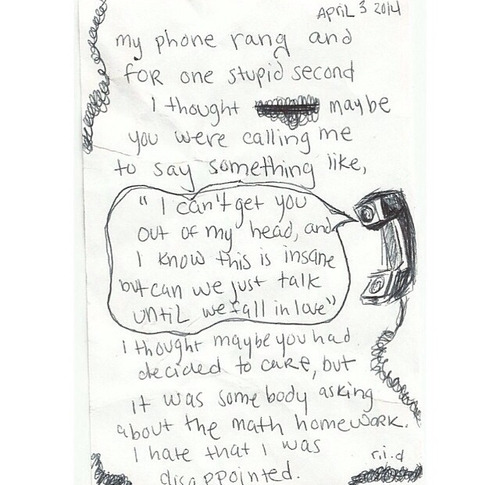 APRIL 3 2014
my phone rang and
FOR one stupid second
I thought maybe
you were calling me
to say something like,
"I can't get you
out of my head, and
I know this is insane
but can we just talk
UNTIL we fall in love"
I thought maybe you had
decided to care, but
it was somebody asking
about the math homework.
I hate that I was
disappointed.
r.i.d